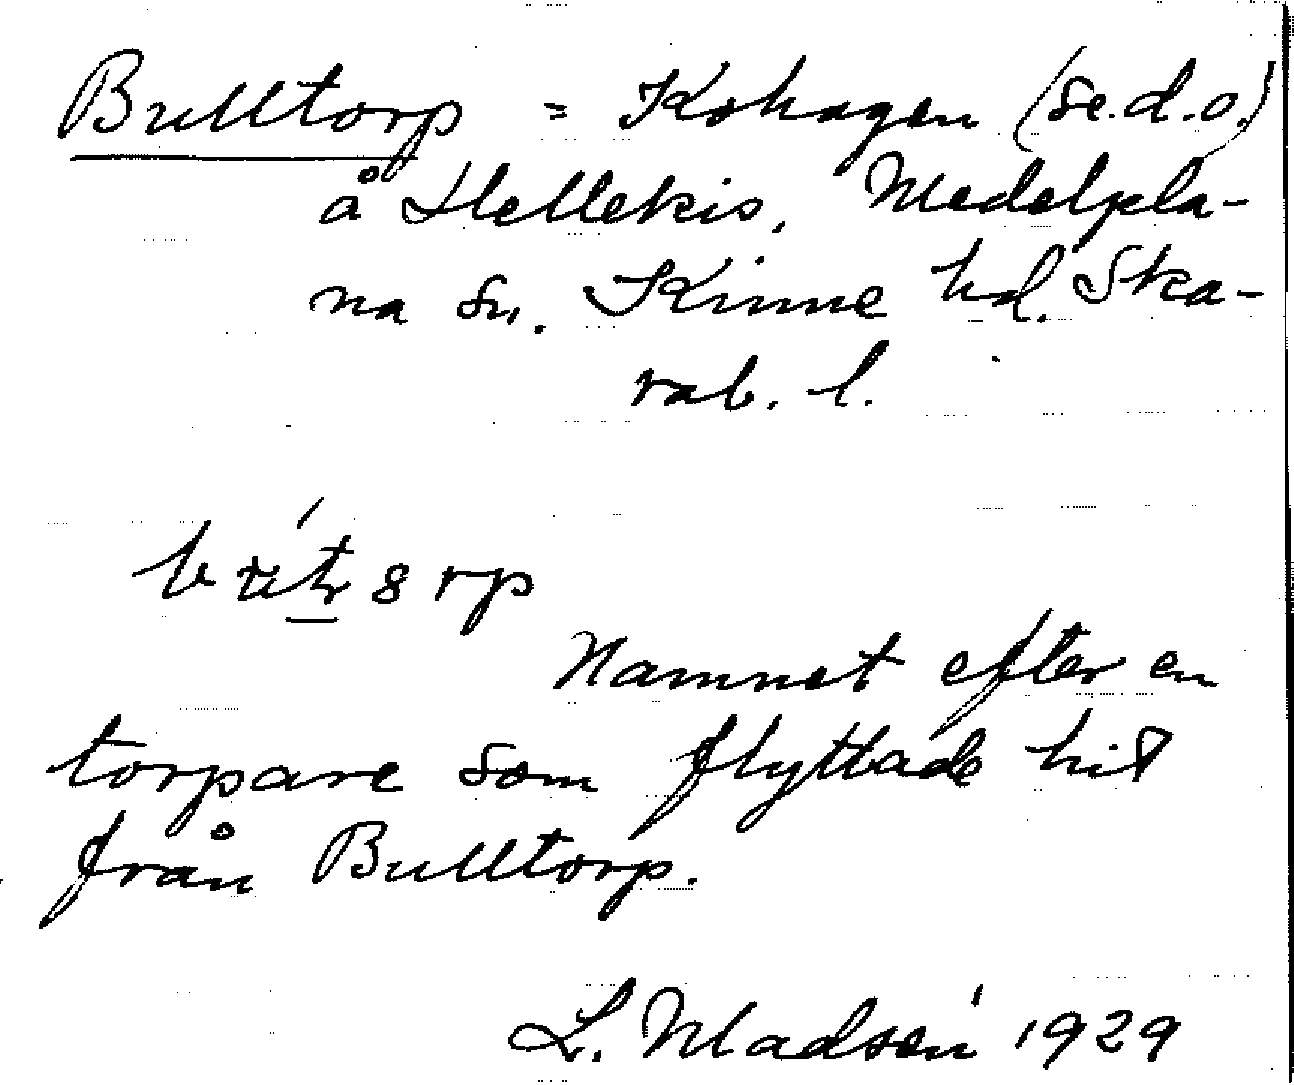 Bulltorp = Kohagen (se.d.o.)
å Hellekis, Medelpla-
na sn. Kinne hd. Ska-
rab. l.
Namnet efter en
torpare som flyttade hit
från Bulltorp.
L. Madsén 1929